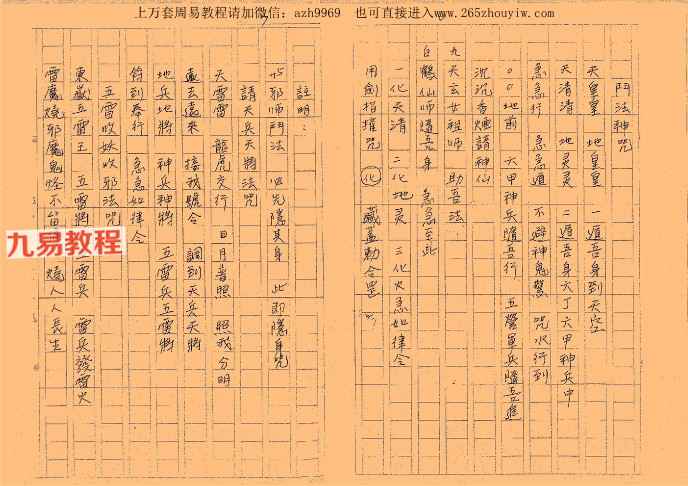 上万套周易教程请加微信：azh9969 也可直接进入www.265zhouyiw.com
鬥法神咒
天皇皇 地皇皇 一遁吾身到天空
天清清 地灵灵 二遁吾身六丁六甲神兵中
急急行 急急遁 不避神鬼驚 咒水行到
地前 六甲神兵隨吾行 五營軍兵隨吾進
九天玄女祖師 助吾法
白鶴仙師隨吾身 急急至此
沉沉香煙請神仙
一化天清 二化地灵 三化火急如律令
用劍指指咒 化 藏蓋勅令罡
註明：
與邪師鬥法 必先隱其身 此即隱身咒
請天兵天將法咒
天雷雷 龍虎交行 日月普照 照我分明
遠去遠來 接我號令 調到天兵天將
地兵地將 神兵神將 五雷兵五雷將
符到奉行 急急如律令
五雷收妖收邪法咒
東嶽五雷王 五雷將 五雷兵 雷兵發雷火
雷魔燒邪魔鬼怪不留 燒人人長生
九易教程